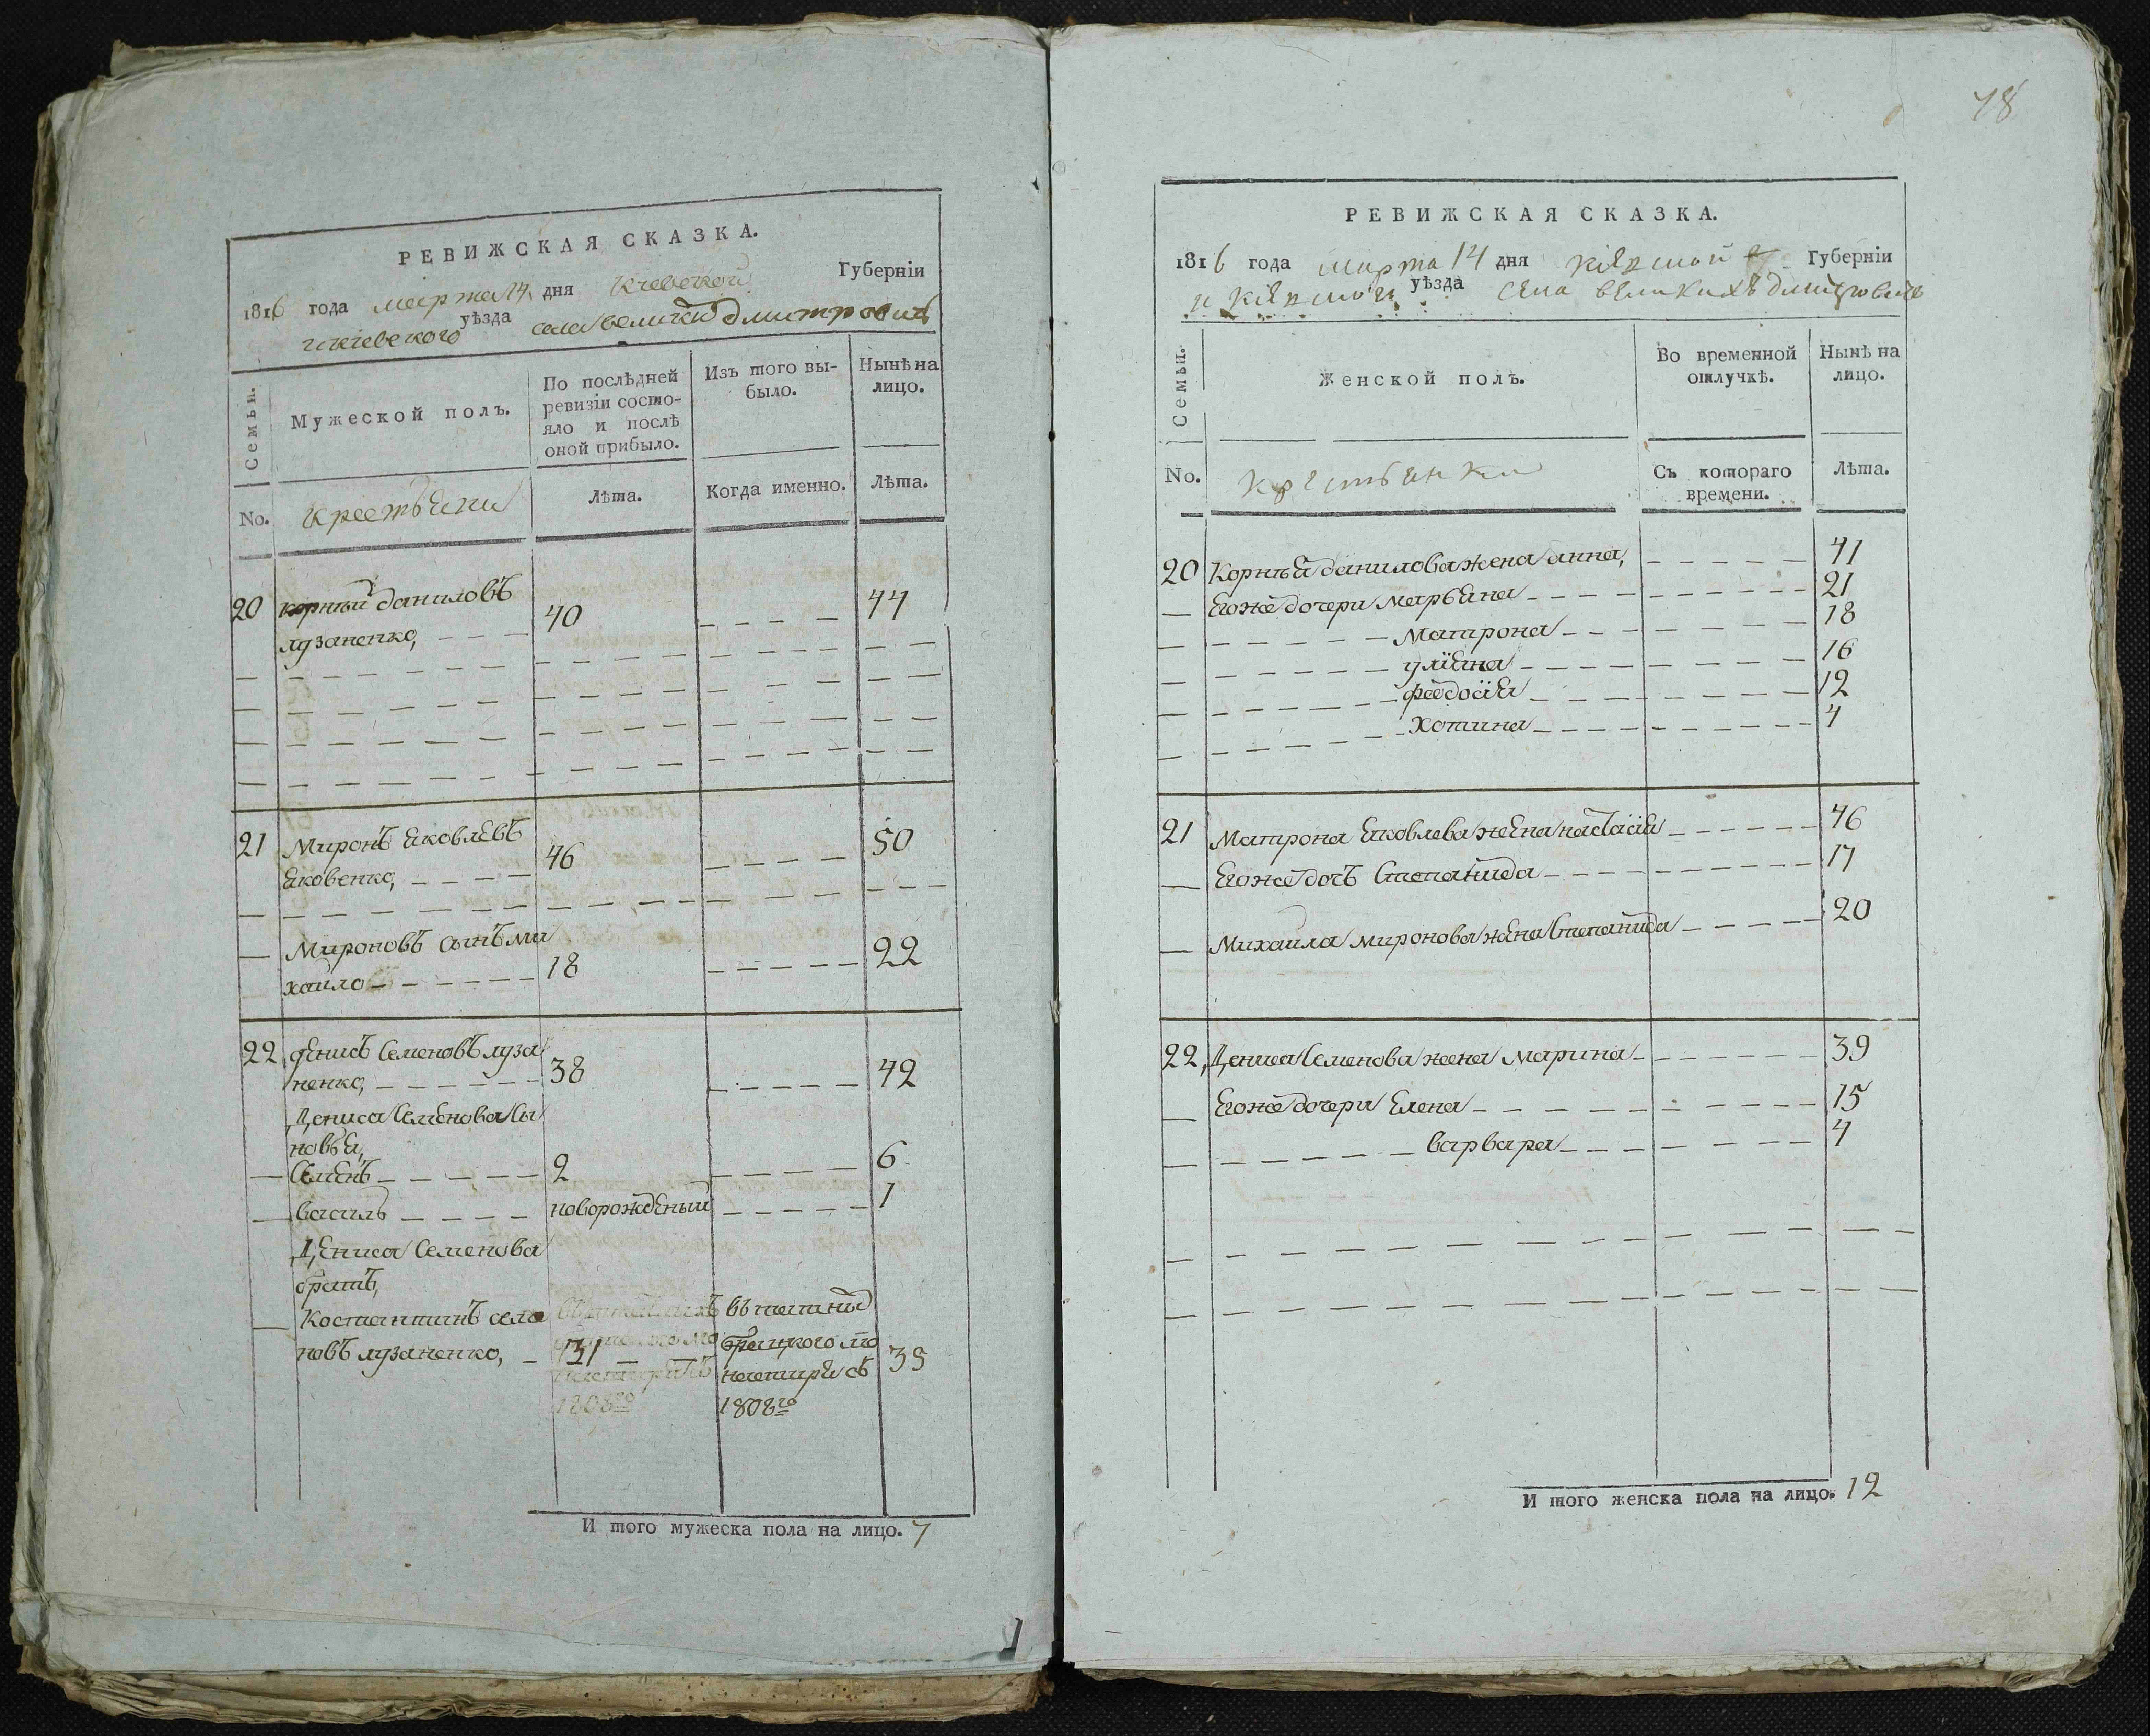 РЕВИЖСКАЯ СКАЗКА.
1816 года марта 14 дня Киевской Губерніи
и киевского уѣзда села великий дмитровичъ
Семьи.
Мужеской полъ.
По послѣдней ревизіи состо-
яло и послѣ
оной прибыло.
Изъ того вы-
было.
Нынѣ на
лицо.
No.
крестьяни
Лѣта.
Когда именно.
Лѣта.
20 корнѣй даниловъ
лузаненко, 40 44
21 Миронъ яковлевъ
яковенко, 46 50
Мироновъ сынъ ми
хайло 18 22
22 денисъ Семеновъ луза
ненко, 38 42
Дениса Семенова сы
новья,
Семенъ 2 6
василь новорожденый 1
Дениса Семенова
братъ,
Костантинъ семе
новъ лузаненко, 31
39
монастиря съ
1808го 1808го
И того мужеска пола на лицо. 7
78
РЕВИЖСКАЯ СКАЗКА.
1816 года марта 14 дня Губерніи
уѣзда села великихъ дмитровичъ
Семьи.
Женской полъ.
Во временной
отлучкѣ.
Нынѣ на
лицо.
No.
крестьянки
Съ котораго
времени.
Лѣта.
20 Корнѣя данилова жена анна, 41
Егоже дочери марьяна 21
Матрона 18
уліяна 16
феодосія 12
Хотина 4
21 Матрона яковлева жена настасія 46
Егоже дочъ Степанида 17
Михаила миронова жена Степанида 20
22, Дениса Семенова жена марина 39
Егоже дочери Елена 15
варвара 4
И того женска пола на лицо. 12